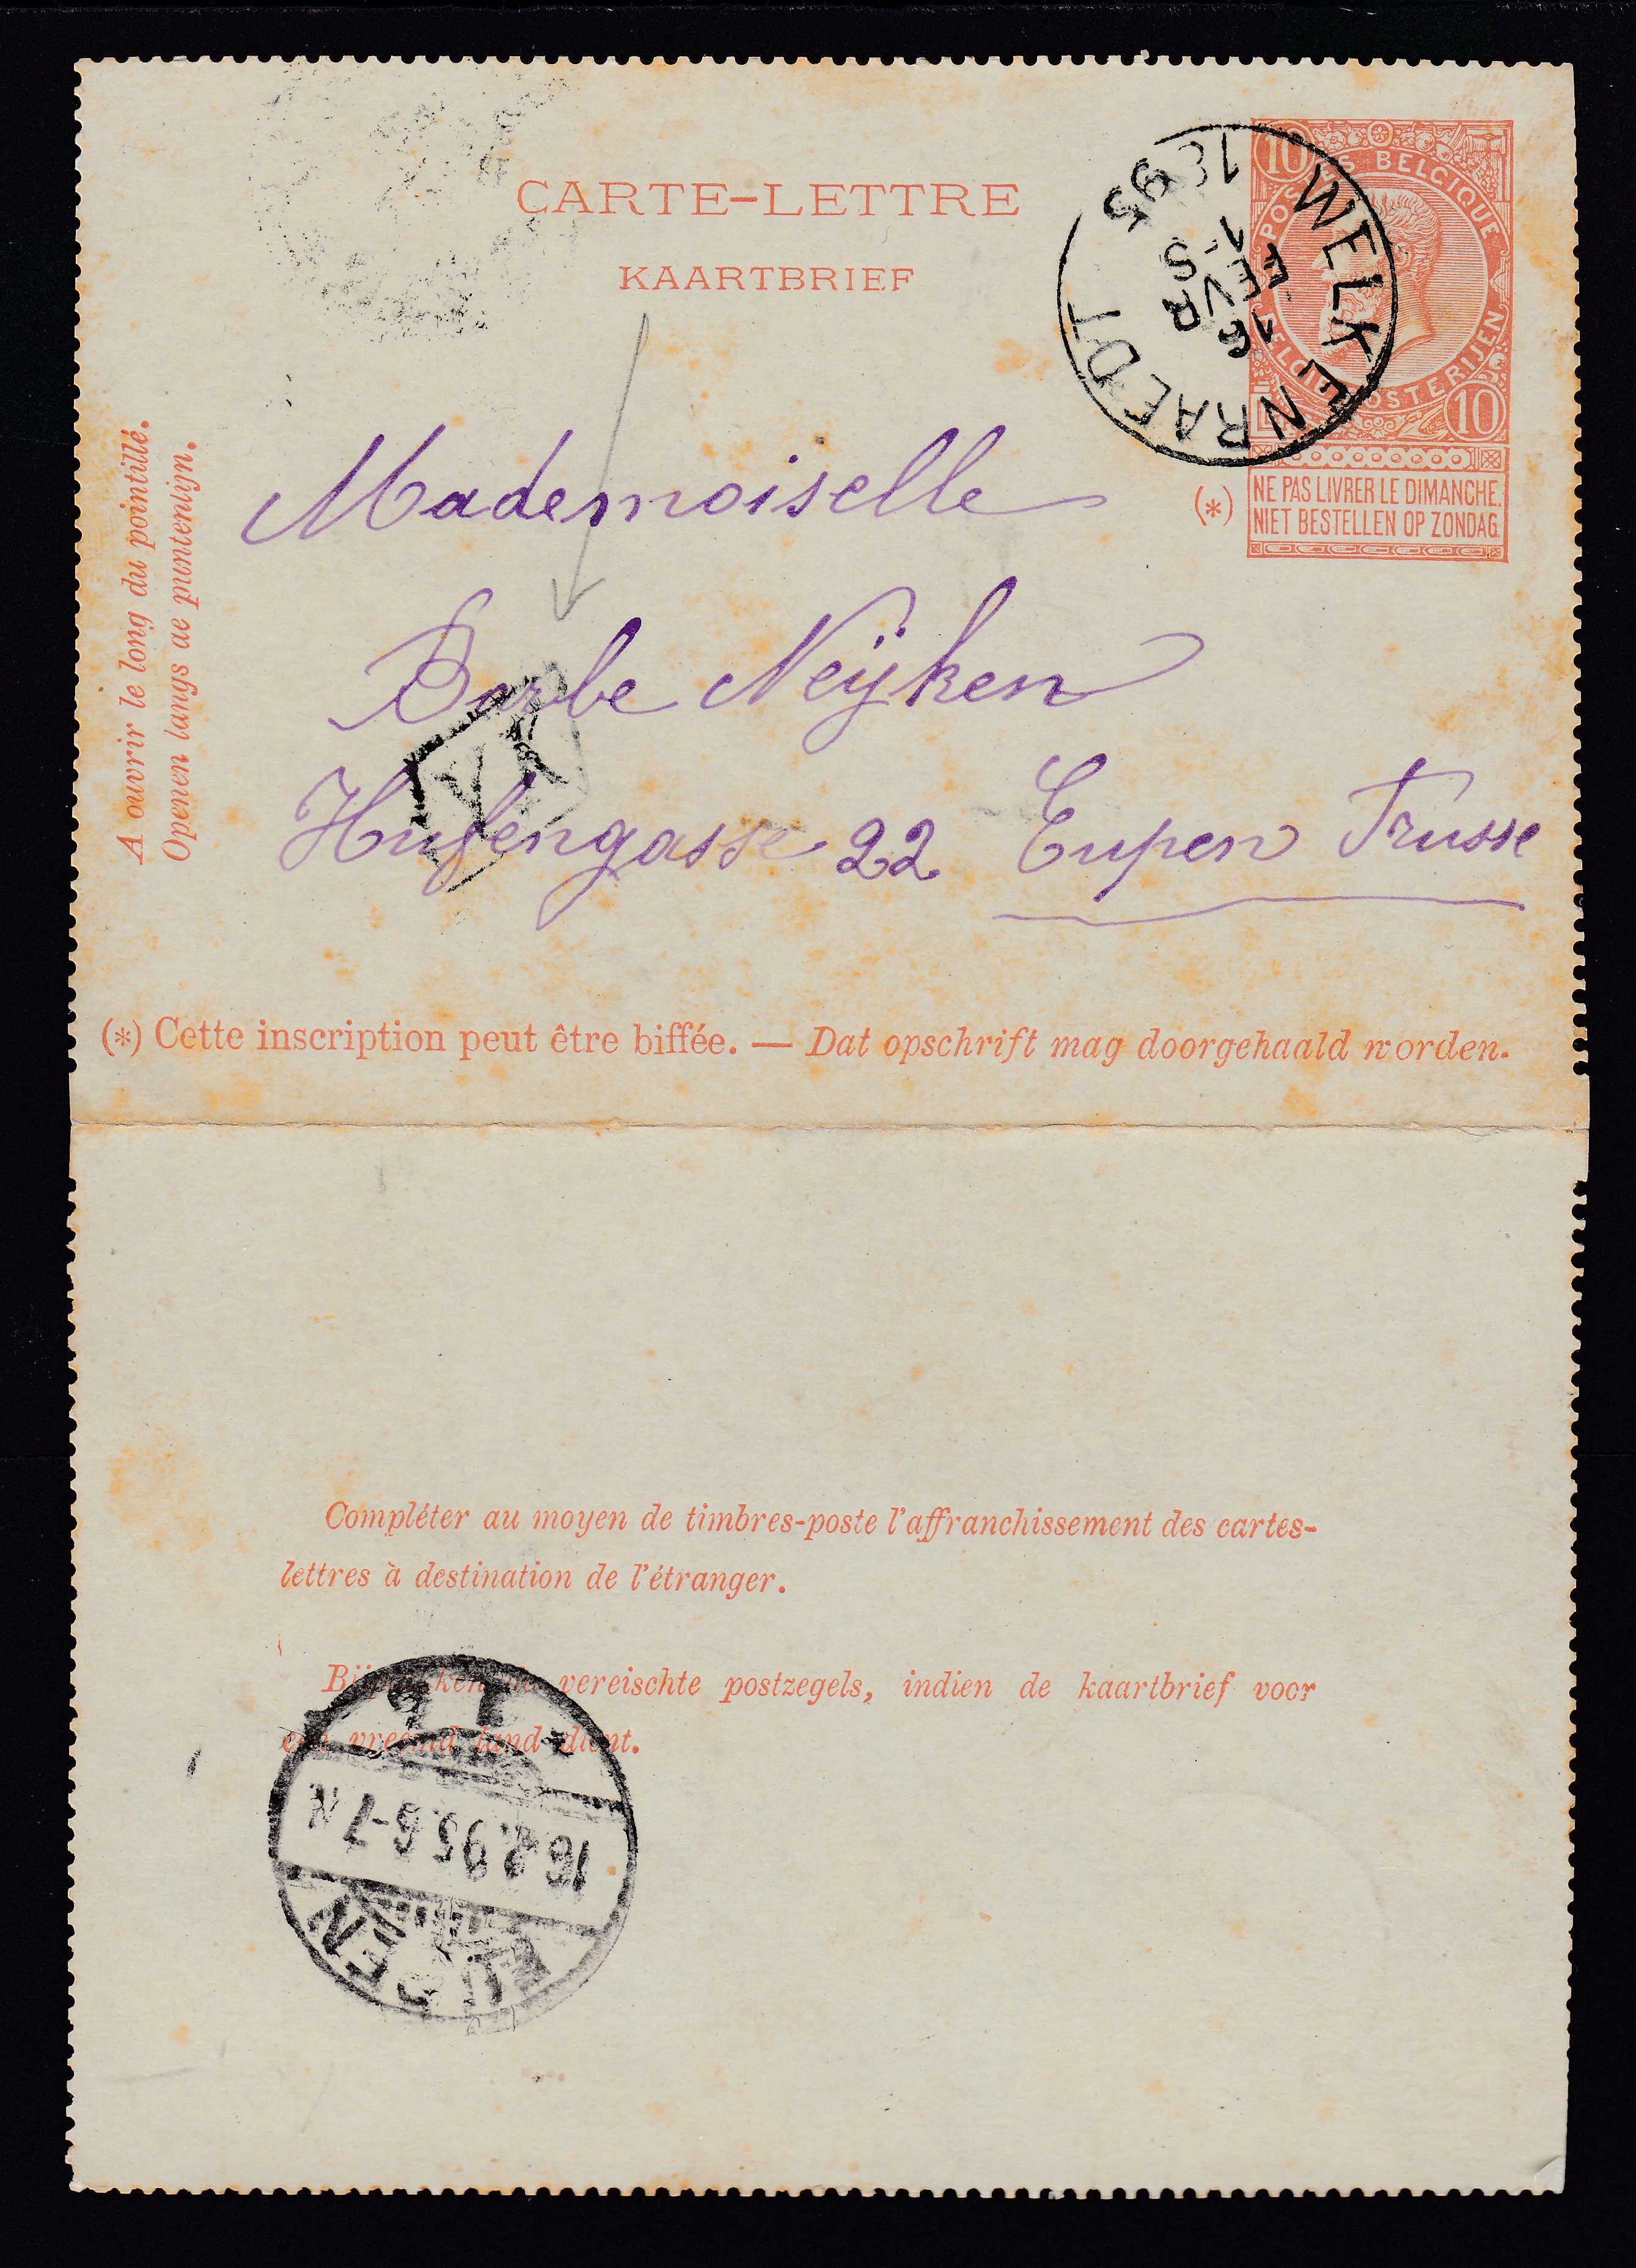 CARTE-LETTRE
KAARTBRIEF
POSTES BELGIQUE
BELGIË POSTERIJEN
10
10
WELKENRAEDT
16
FEVR
1-S
1895
(*)
NE PAS LIVRER LE DIMANCHE.
NIET BESTELLEN OP ZONDAG.
A ouvrir le long du pointillé.
Openen langs de puntenlijn.
Mademoiselle
Barbe Neÿken
Hufengasse 22 Eupen Prusse
(*) Cette inscription peut être biffée. — Dat opschrift mag doorgehaald worden.
Compléter au moyen de timbres-poste l'affranchissement des cartes-
lettres à destination de l'étranger.
Bijplakken de vereischte postzegels, indien de kaartbrief voor
een vreemd land dient.
EUPEN
16.2.95.6-7N